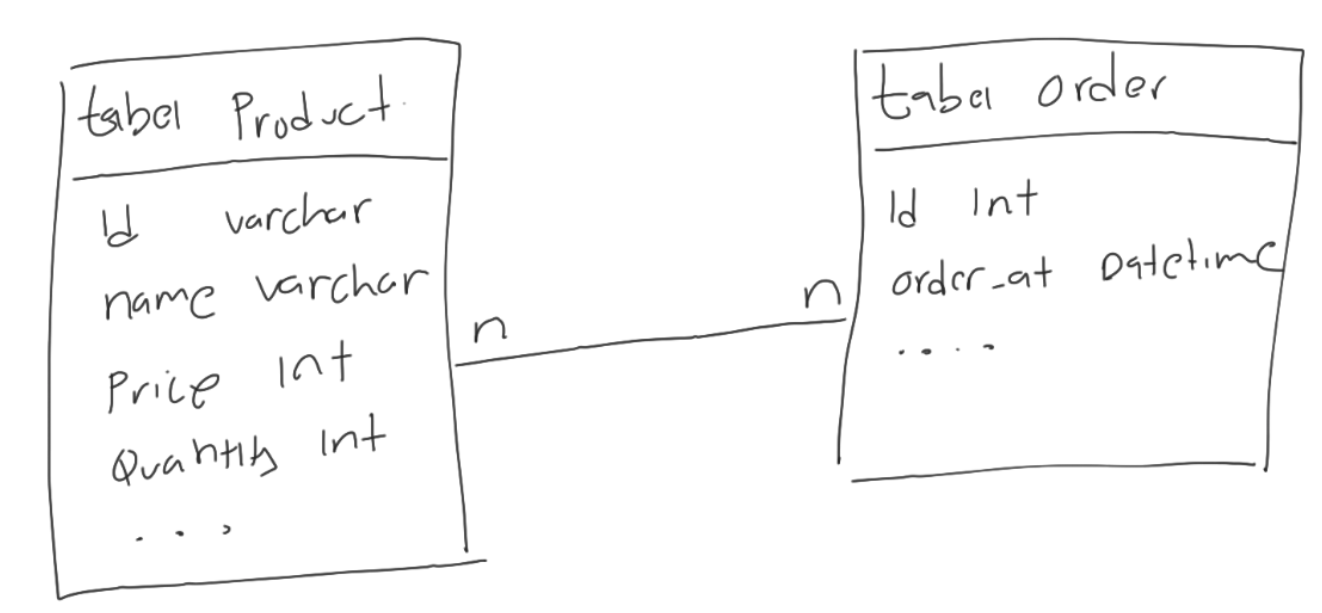 tabel Product
Id varchar
name varchar
Price Int
Quantity Int
...
n
n
tabel order
Id Int
order_at Datetime
....